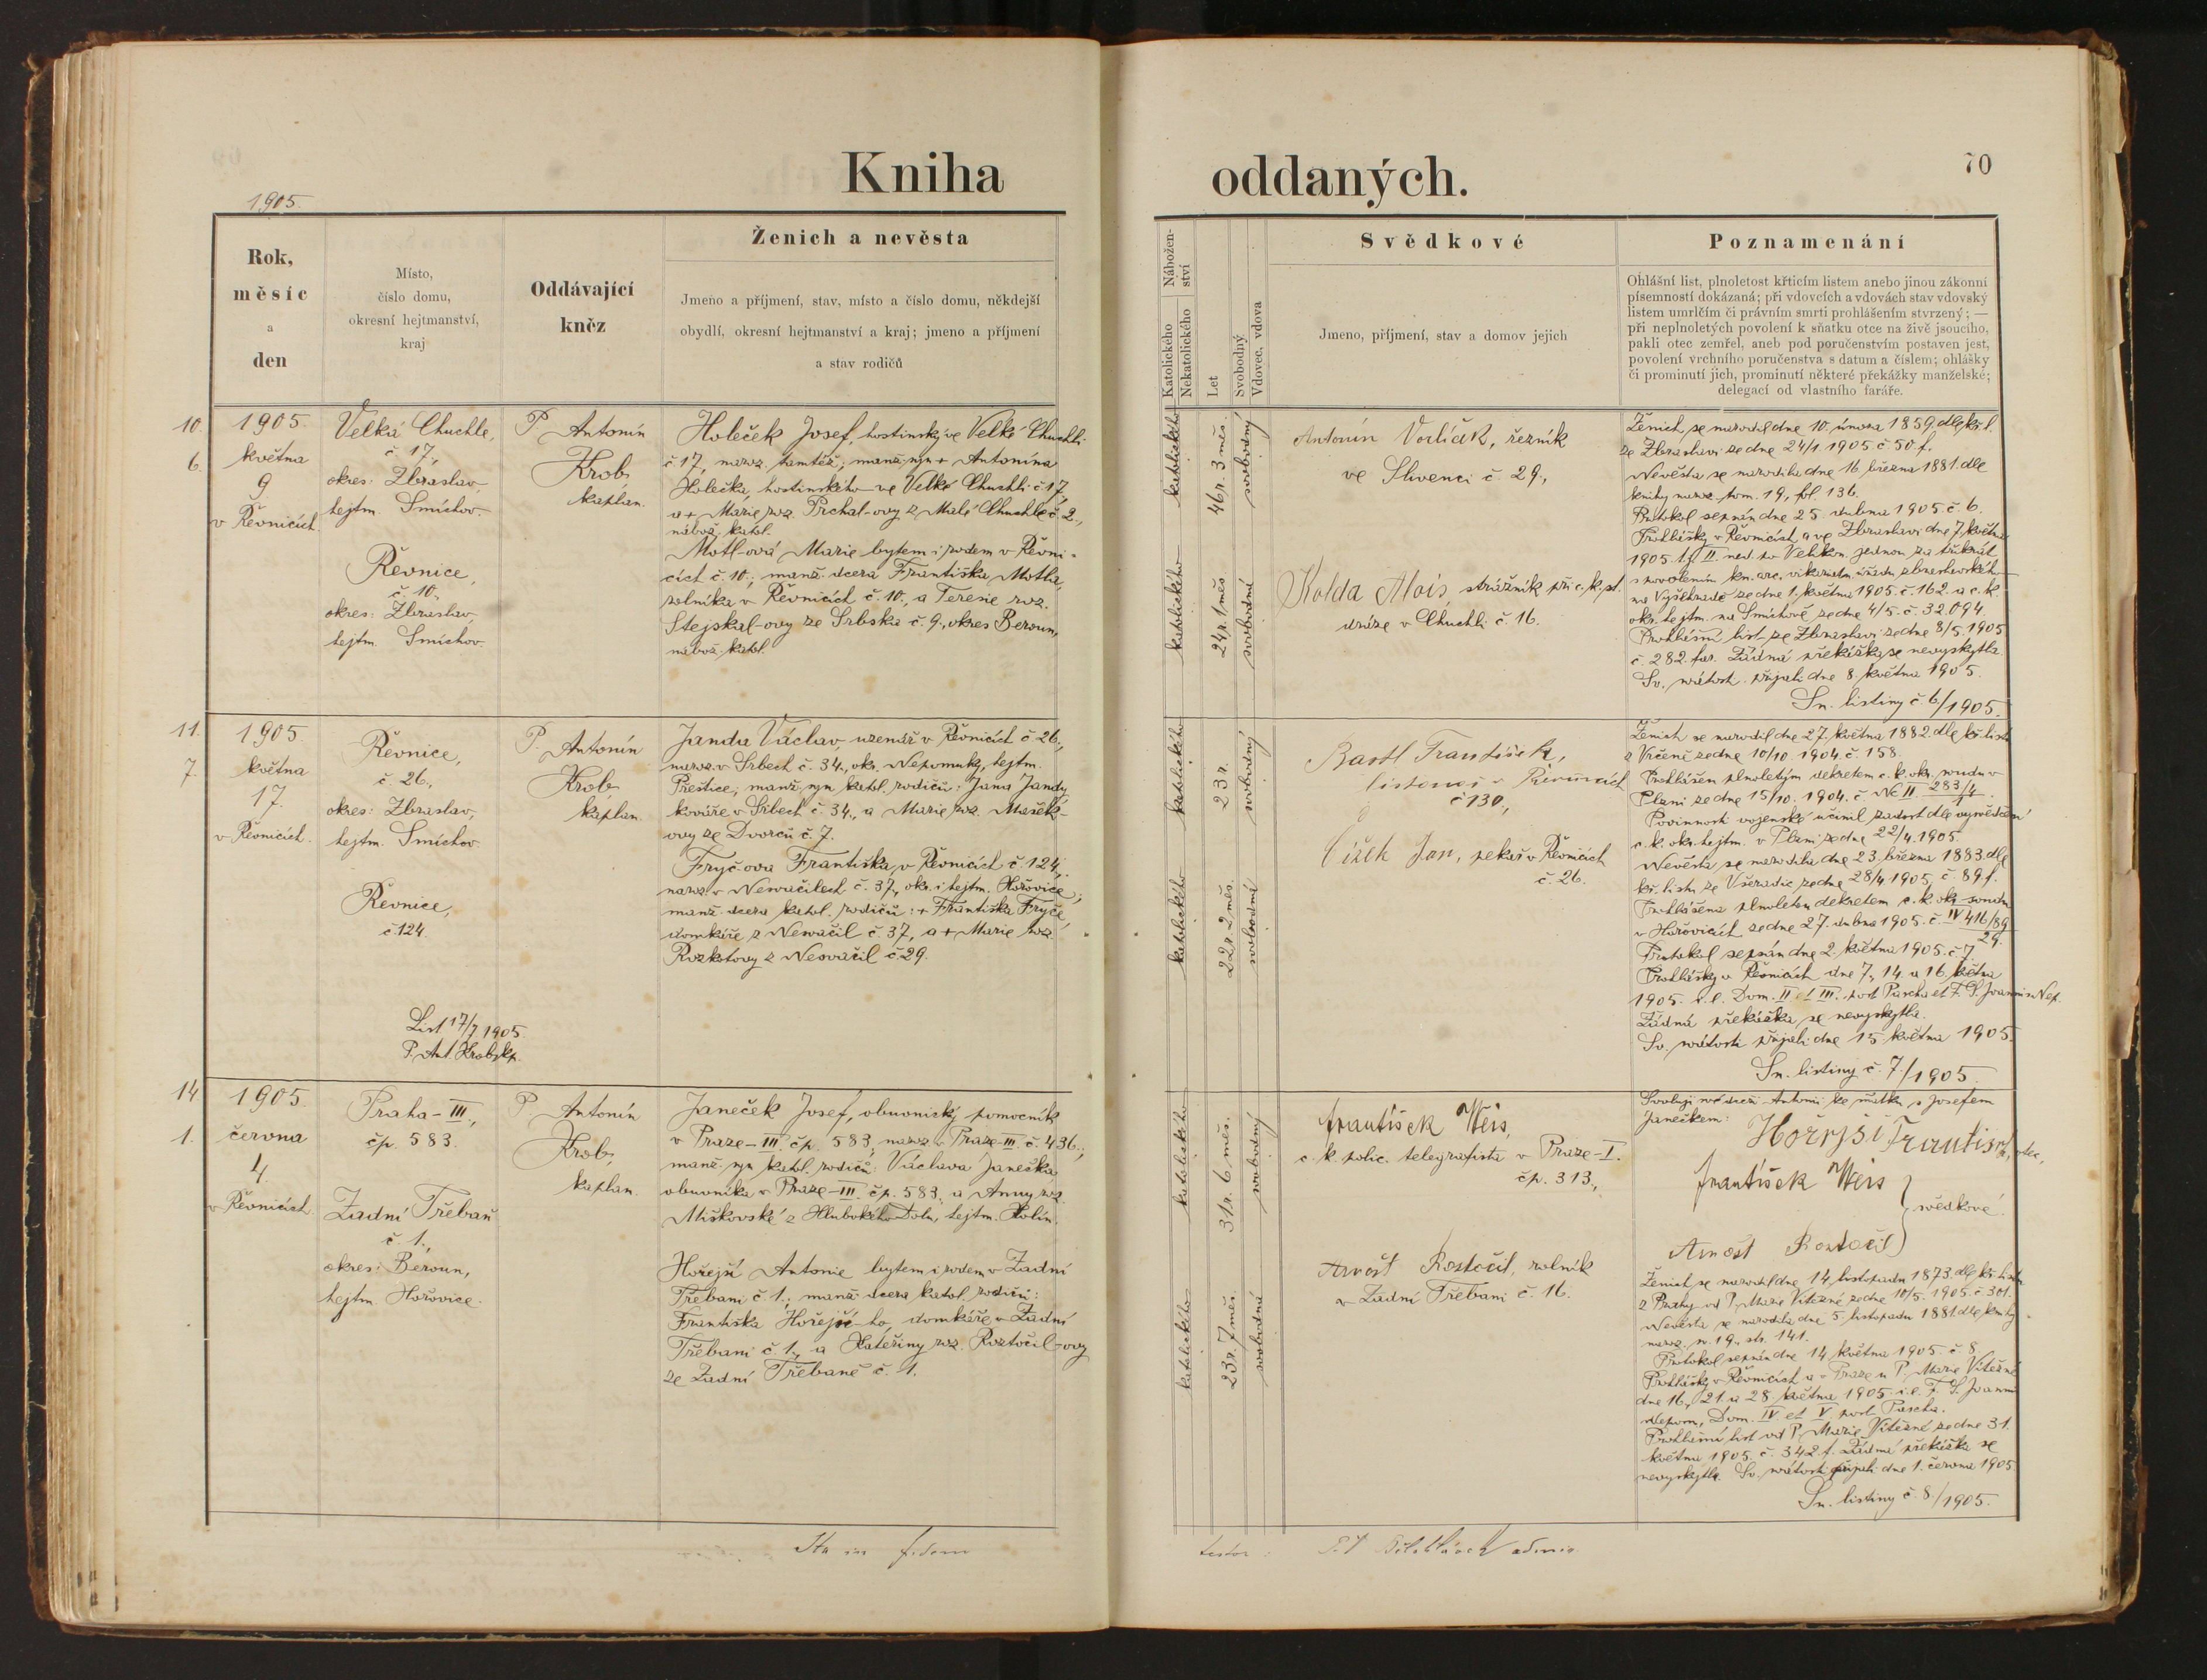 Kniha
oddaných.
70
1905.
Rok,
měsíc
a
den
Místo,
číslo domu,
okresní hejtmanství,
kraj
Oddávající
kněz
Ženich a nevěsta
Jmeno a příjmení, stav, místo a číslo domu, někdejší
obydlí, okresní hejtmanství a kraj; jmeno a příjmení
a stav rodičů
Nábožen-
ství
Katolického
Nekatolického
Let
Svobodný
Vdovec, vdova
Svědkové
Jmeno, příjmení, stav a domov jejich
Poznamenání
Ohlášní list, plnoletost křticím listem anebo jinou zákonní
písemností dokázaná; při vdovcích a vdovách stav vdovský
listem umrlčím či právním smrti prohlášením stvrzený; —
při neplnoletých povolení k sňatku otce na živě jsoucího,
pakli otec zemřel, aneb pod poručenstvím postaven jest,
povolení vrchního poručenstva s datum a číslem; ohlášky
či prominutí jich, prominutí některé překážky manželské;
delegací od vlastního faráře.
10.
6.
1905.
května
9.
v Řevnicích.
Velká Chuchle,
č 17.,
okres: Zbraslav,
hejtm. Smíchov.
Řevnice,
č. 10.,
okres: Zbraslav,
hejtm. Smíchov.
P. Antonín
Krob,
kaplan.
Holeček Josef, hostinský ve Velké Chuchli
č 17, naroz. tamtéž; manž. syn + Antonína
Holečka, hostinského ve Velké Chuchli č 17,
a + Marie roz. Prchal-ovy z Malé Chuchle č. 2.,
nábož. katol.
Motl-ová Marie bytem i rodem v Řevni-
cích č. 10., manž. dcera Františka Motla,
rolníka v Řevnicích č. 10., a Terezie roz.
Stejskal-ovy ze Srbska č. 9., okres Beroun,
nábož. katol.
katolického
46 r. 3 měs.
svobodný
katolického
24 r. 1 měs
svobodná
Antonín Vodičák, řezník
ve Slivenci č. 29.,
Kolda Alois, strážník při c. k. st.
dráze v Chuchli č. 16.
Ženich se narodil dne 10. února 1859 dle kř. l.
ze Zbraslavi ze dne 24/1 1905 č 50. f.
Nevěsta se narodila dne 16. března 1881. dle
knihy naroz. tom. 19., fol. 136.
Protokol sepsán dne 25. dubna 1905 č. 6.
Prohlášky v Řevnicích a ve Zbraslavi dne 7. května
1905 t. j. II. ned. po Velikon. jednou za třikrát
s povolením kn. arc. vikariatn. úřadu zbraslavského
na Vyšehradě ze dne 1. května 1905. č. 162. a c. k.
okr. hejtm. na Smíchově ze dne 4/5. č. 32.094.
Prohlášní list ze Zbraslavi ze dne 8/5. 1905
č. 282. far. Žádná překážka se nevyskytla.
Sv. svátosti přijali dne 8. května 1905.
Sn. listiny č. 6/1905.
11.
7.
1905.
května
17.
v Řevnicích.
Řevnice,
č. 26.,
okres: Zbraslav,
hejtm. Smíchov.
Řevnice,
č 124.
List 17/7 1905
P. Ant. Krob, kp.
P. Antonín
Krob,
kaplan.
Janda Václav, uzenář v Řevnicích č 26.,
naroz. v Srbech č. 34., okr. Nepomuk, hejtm.
Přeštice; manž. syn katol. rodičů: Jana Jandy
kováře v Srbech č. 34., a Marie roz. Mašek-
ovy ze Dvorců č. 7.
Fryč-ova Františka, v Řevnicích č 124.,
naroz. v Nesvačilech č. 37., okr. i hejtm. Hořovice;
manž. dcera katol. rodičů: + Františka Fryče
domkáře z Nesvačil č. 37, a + Marie roz.
Rozkotovy z Nesvačil č. 29.
katolického
23 r.
svobodný
katolického
22 r. 2 měs.
svobodná
Bartl František,
listonoš v Řevnicích
č 130.,
Čížek Jan, pekař v Řevnicích
č. 26.
Ženich se narodil dne 27. května 1882 dle kř. listu
z Vrčeně ze dne 10/10. 1904. č. 158.
Prohlášen plnoletým dekretem c. k. okr. soudu v
Plzni ze dne 15/10. 1904. č. Nc II 283/4.
Povinnosti vojenské učinil zadost dle vysvědčení
c. k. okr. hejtm. v Plzni ze dne 22/4. 1905.
Nevěsta se narodila dne 23. března 1883 dle
kř. listu ze Všeradic ze dne 28/4. 1905, č. 89 f.
Prohlášena plnoletou dekretem c. k. okr. soudu
v Hořovicích ze dne 27. dubna 1905. č. IV 416/89
29.
Protokol sepsán dne 2. května 1905. č. 7.
Prohlášky v Řevnicích dne 7., 14. a 16. května
1905. i. e. Dom. II. et III. post Pascha et F. S. Joannis Nep.
Žádná překážka se nevyskytla.
Sv. svátosti přijali dne 15. května 1905.
Sn. listiny č. 7./1905.
14
1.
1905.
června
4.
v Řevnicích
Praha-III.,
čp. 583.
Zadní Třebaň
č. 1.,
okres: Beroun,
hejtm. Hořovice.
P. Antonín
Krob,
kaplan.
Janeček Josef, obuvnický pomocník
v Praze-III. čp. 583, naroz. v Praze-III č. 436.;
manž. syn katol. rodičů: Václava Janečka,
obuvníka v Praze-III. čp. 583., a Anny roz.
Miškovské z Hlubokého Dolu, hejtm. Kolín.
Hořejší Antonie bytem i rodem v Zadní
Třebani č. 1.; manž. dcera katol. rodičů:
Františka Hořejší-ho, domkáře v Zadní
Třebani č. 1., a Kateřiny roz. Roztočil-ovy
ze Zadní Třebaně č. 1.
katolického
31 r. 6 měs.
svobodný
katolického
23 r. 7 měs.
svobodná
František Weis,
c. k. polic. telegrafista v Praze-I.
čp. 313.,
Arnošt Roztočil, rolník
v Zadní Třebani č. 16.
Svoluji své dceři Antonii ke sňatku s Josefem
Janečkem:
Hořejší František, otec,
František Weis
svědkové.
Arnošt Roztočil
Ženich se narodil dne 14. listopadu 1873. dle kř. listu
z Prahy od P. Marie Vítězné ze dne 10/5. 1905. č. 301.
Nevěsta se narodila dne 5. listopadu 1881. dle knihy
naroz. sv. 19., str. 141.
Protokol sepsán dne 14. května 1905 č. 8.
Prohlášky v Řevnicích a v Praze u P. Marie Vítězné
dne 16., 21. a 28. května 1905. i. e. F. S. Joannis
Nepom., Dom. IV et V post Pascha.
Prohlášní list od P. Marie Vítězné ze dne 31.
května 1905. č. 342 f. Žádná překážka se
nevyskytla. Sv. svátosti přijali dne 1. června 1905
Sn. listiny č. 8./1905.
Ita in fidem
testor: